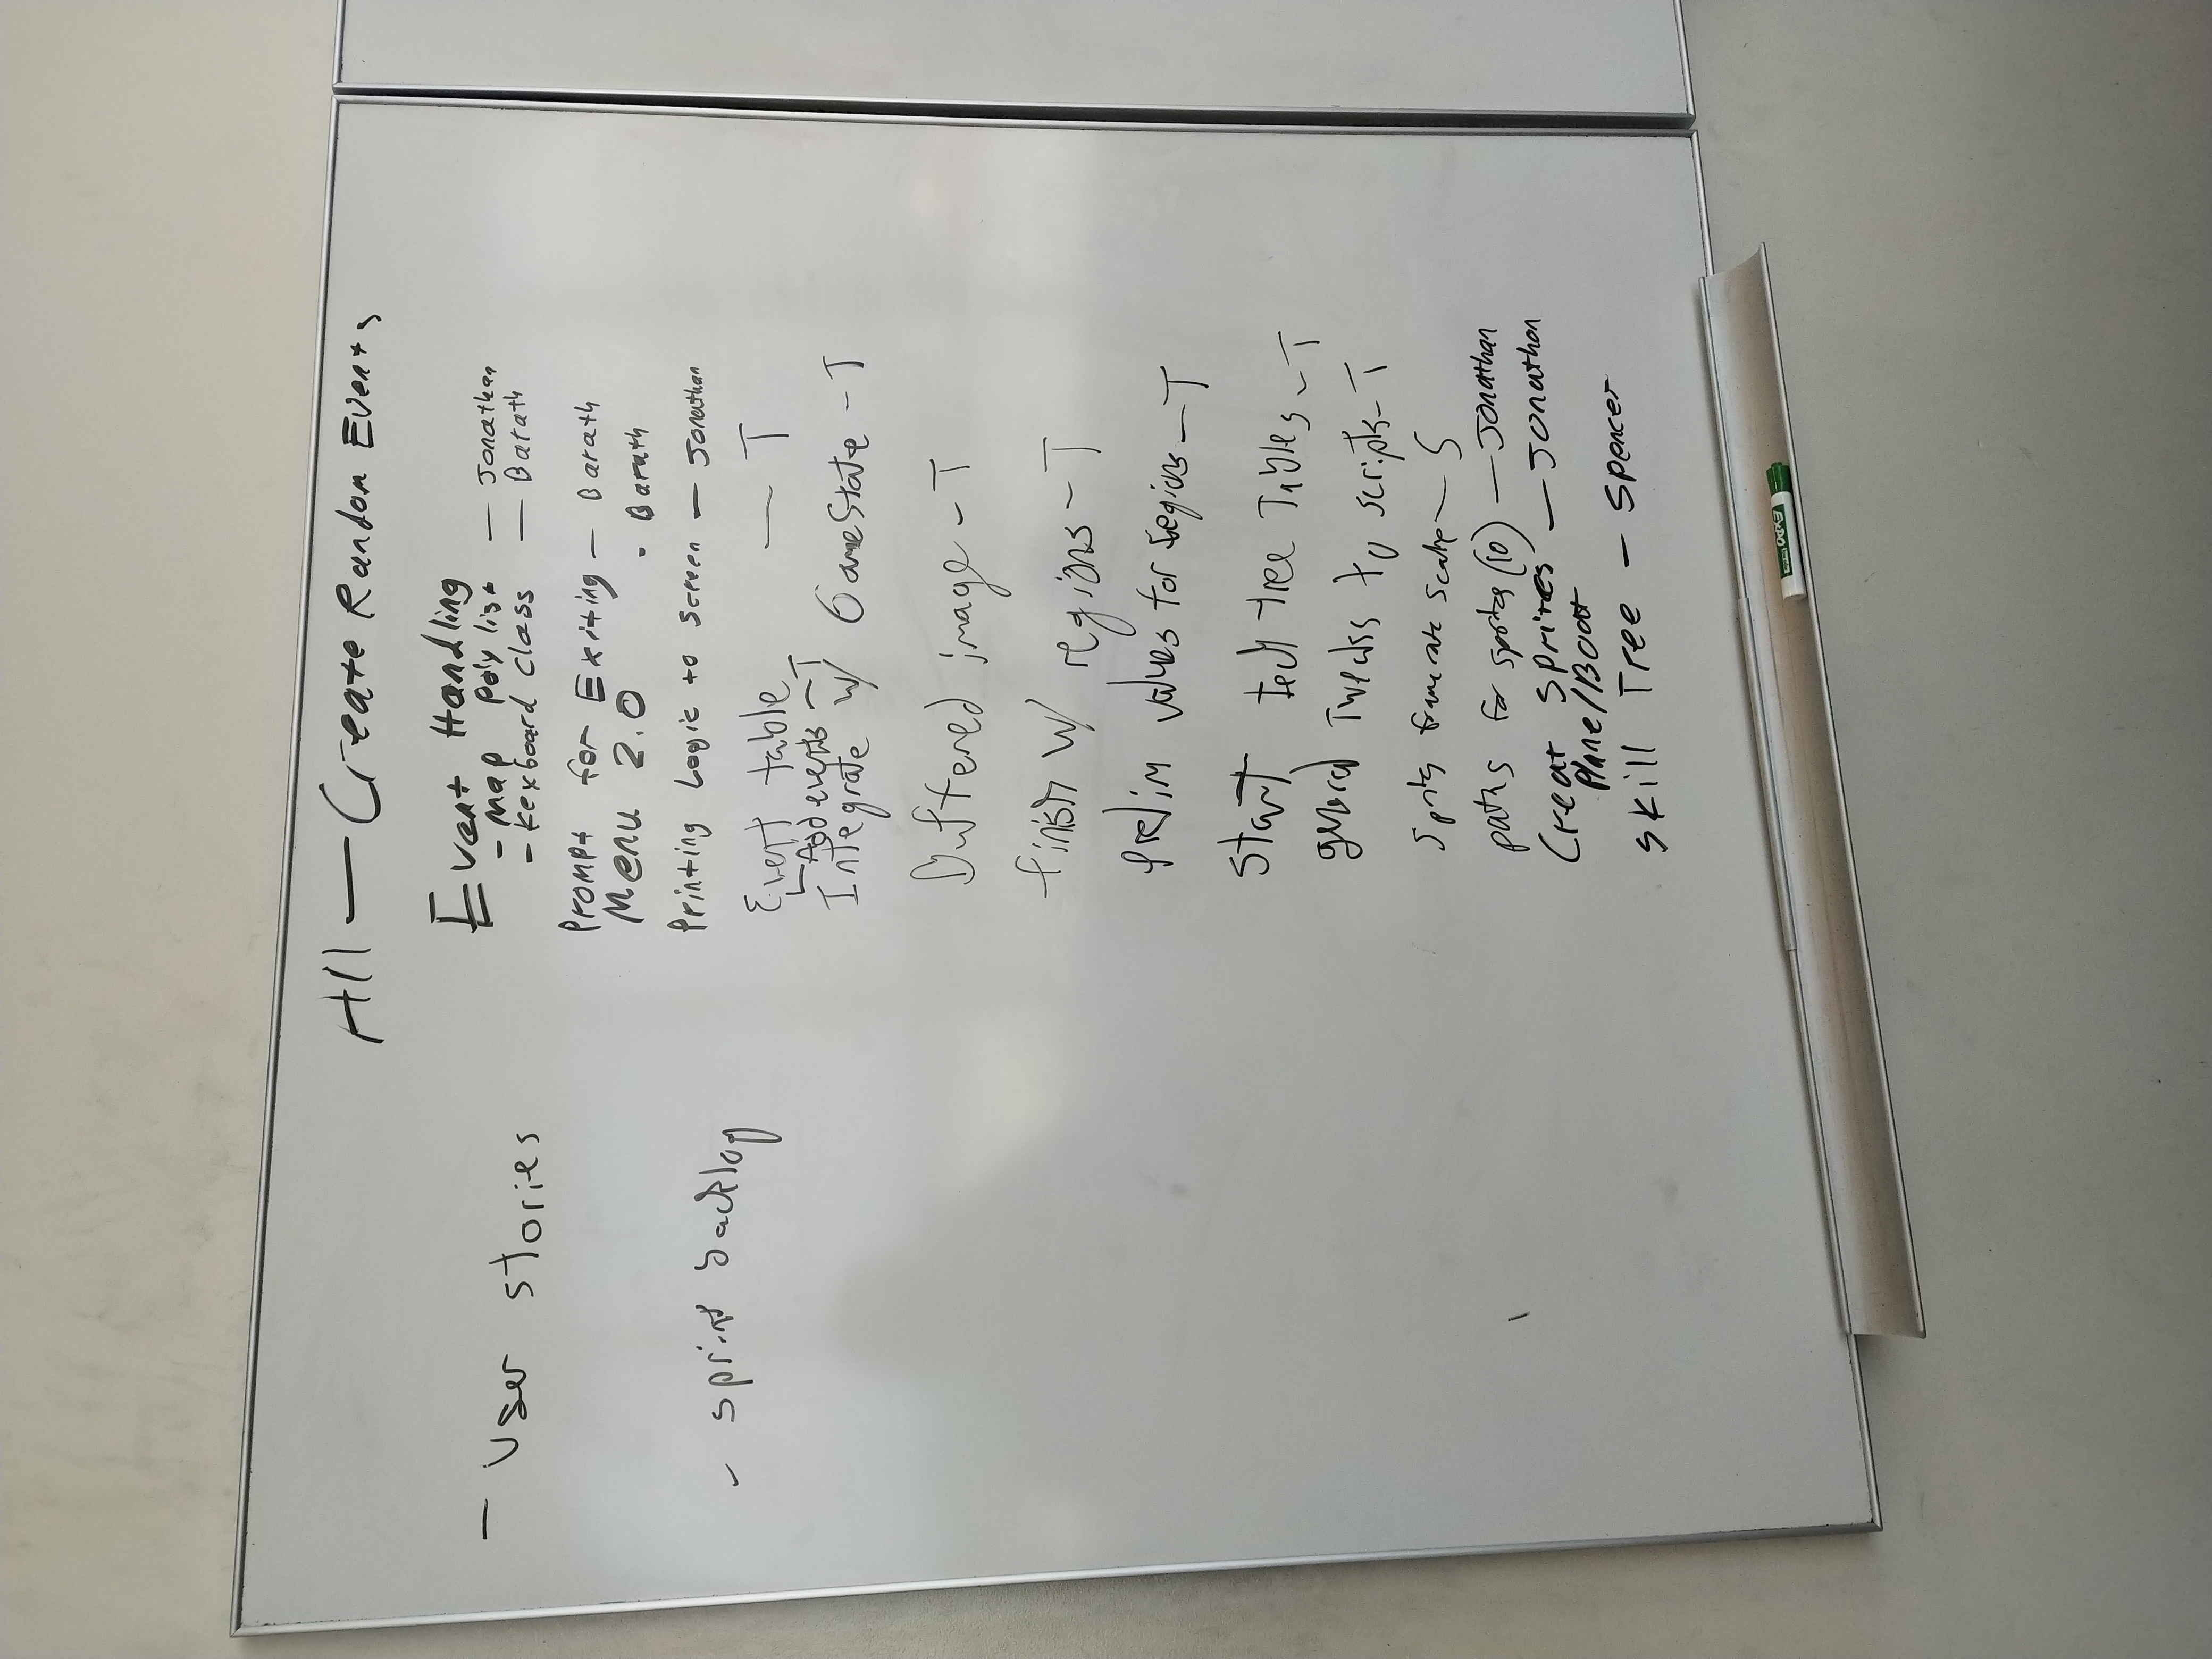 All — Create Random Events
- User stories
- sprint backlog
Event Handling
- Map Poly list — Jonathan
- Keyboard Class — Barath
Prompt for Exiting — Barath
Menu 2.0 - Barath
Printing Logic to Screen — Jonathan
Event table — T
Add events - T
Integrate w/ GameState - T
Buffered image - T
finish w/ regions - T
prelim values for regions - T
start tech tree Tables - T
general Tweaks to scripts - T
Sprites frame rate — S
paths for sprites (10) — Jonathan
Creat Sprites — Jonathan
Plane/Boat
Skill Tree - Spencer
EXPO